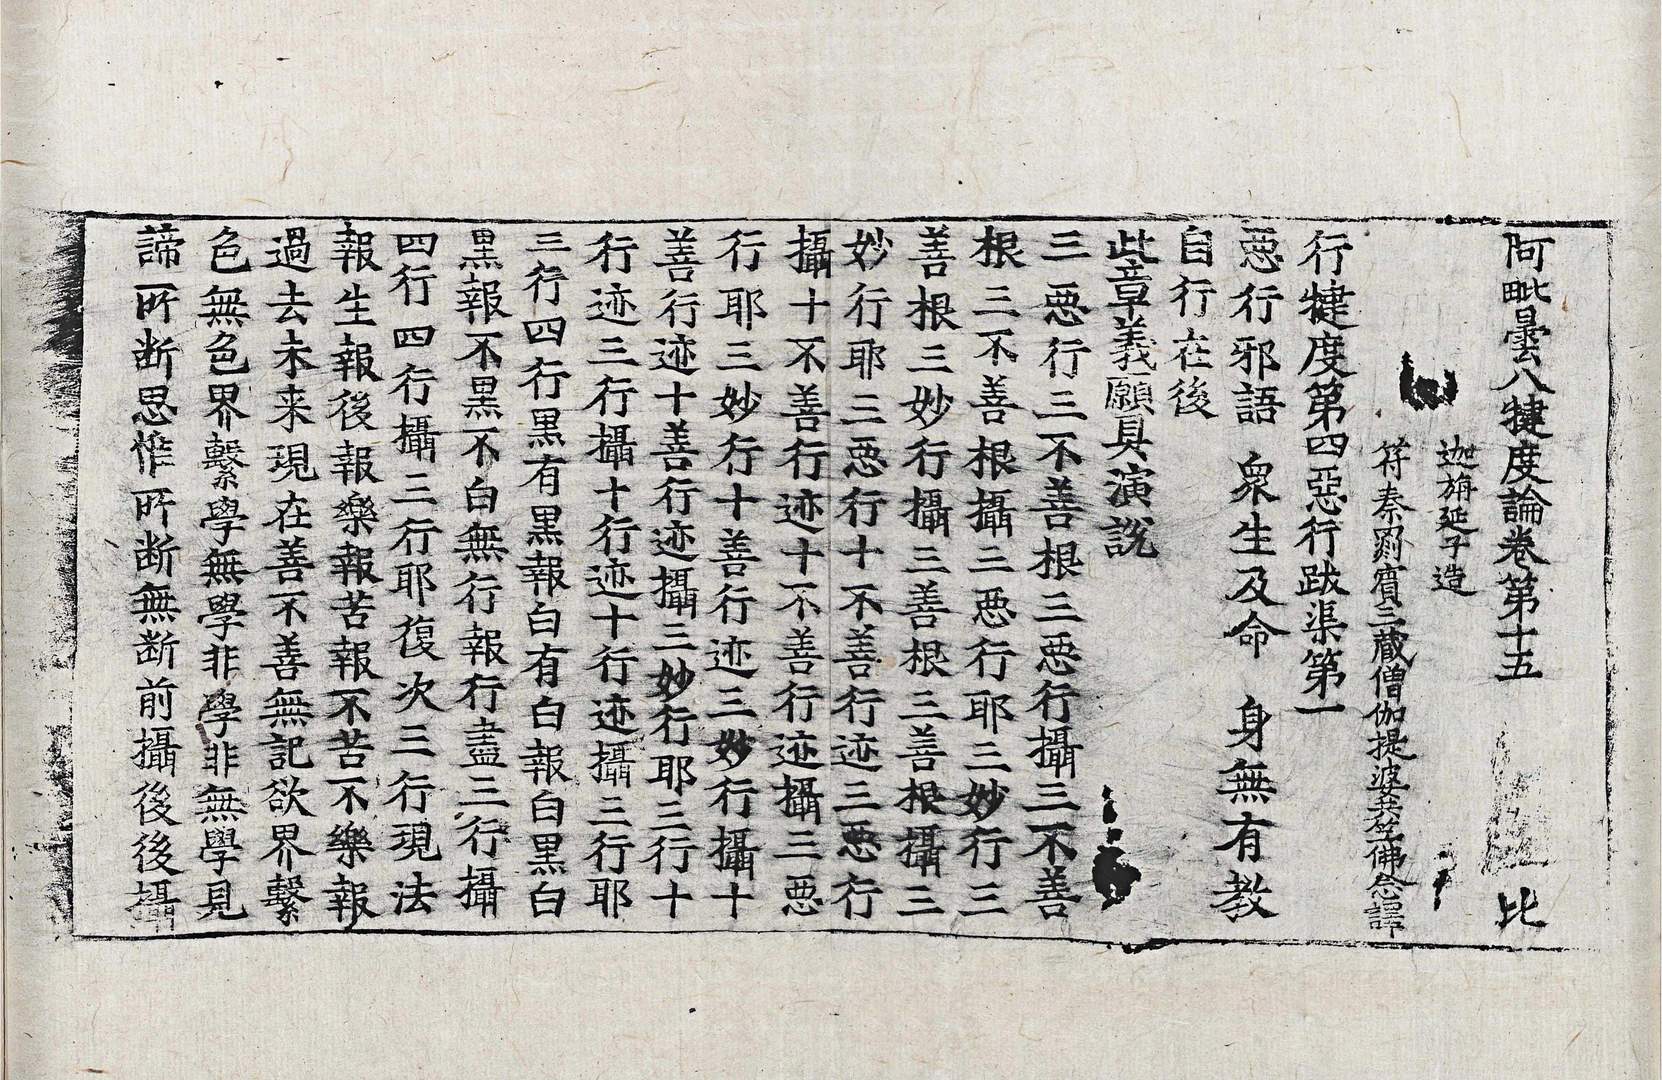 阿毗曇八犍度論卷第十五 比
迦旃延子造
符秦罽賓三藏僧伽提婆共竺佛念譯
行犍度第四惡行跋渠第一
惡行邪語 衆生及命 身無有教
自行在後
此章義願具演說
三惡行三不善根三惡行攝三不善
根三不善根攝三惡行耶三妙行三
善根三妙行攝三善根三善根攝三
妙行耶三惡行十不善行迹三惡行
攝十不善行迹十不善行迹攝三惡
行耶三妙行十善行迹三妙行攝十
善行迹十善行迹攝三妙行耶三行十
行迹三行攝十行迹十行迹攝三行耶
三行四行黑有黑報白有白報白黑白
黑報不黑不白無行報行盡三行攝
四行四行攝三行耶復次三行現法
報生報後報樂報苦報不苦不樂報
過去未來現在善不善無記欲界繫
色無色界繫學無學非學非無學見
諦所断思惟所断無断前攝後後攝